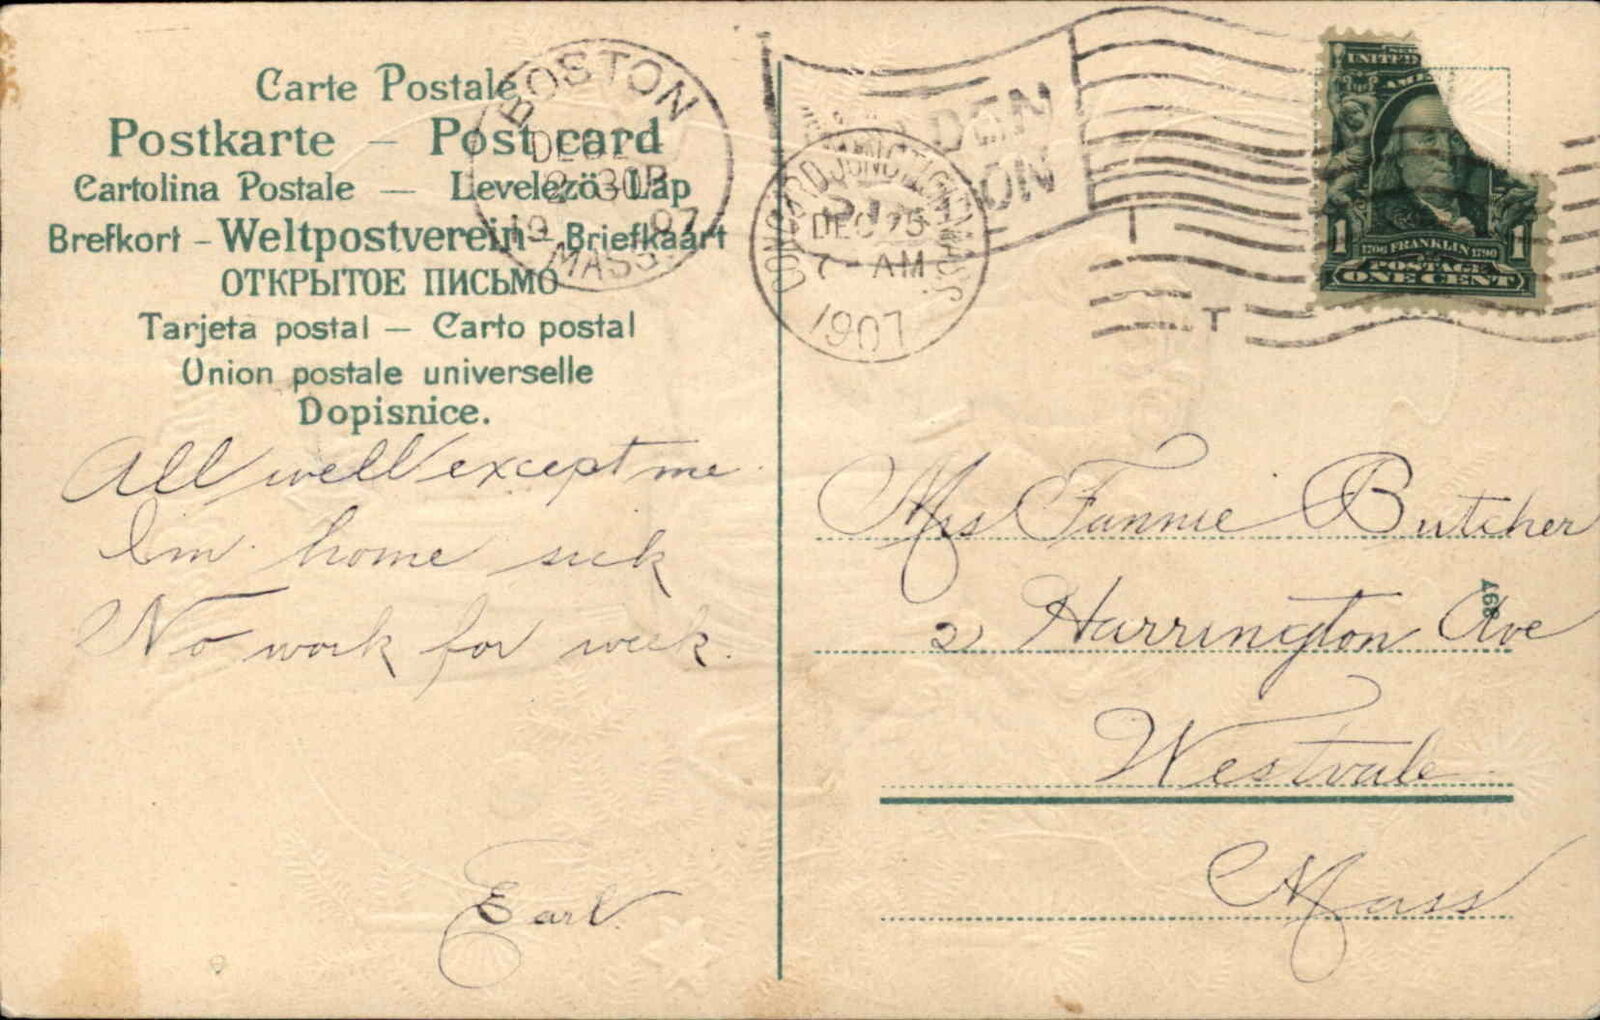 Carte Postale
Postkarte - Post card
Cartolina Postale - Levelezö-Lap
Brefkort - Weltpostverein - Briefkaart
ОТКРЫТОЕ ПИСЬМО
Tarjeta postal - Carto postal
Union postale universelle
Dopisnice.
BOSTON
DEC
2-30P
1907
MASS.
CONCORD JUNCTION, MASS.
DEC 25
7-AM
1907
T
UNITED
1 1706 FRANKLIN 1790 1
POSTAGE
ONE CENT
All well except me
Im home sick
No work for week.
Earl.
Mrs Fannie Butcher
2 Harrington Ave
Westvale
Mass
897